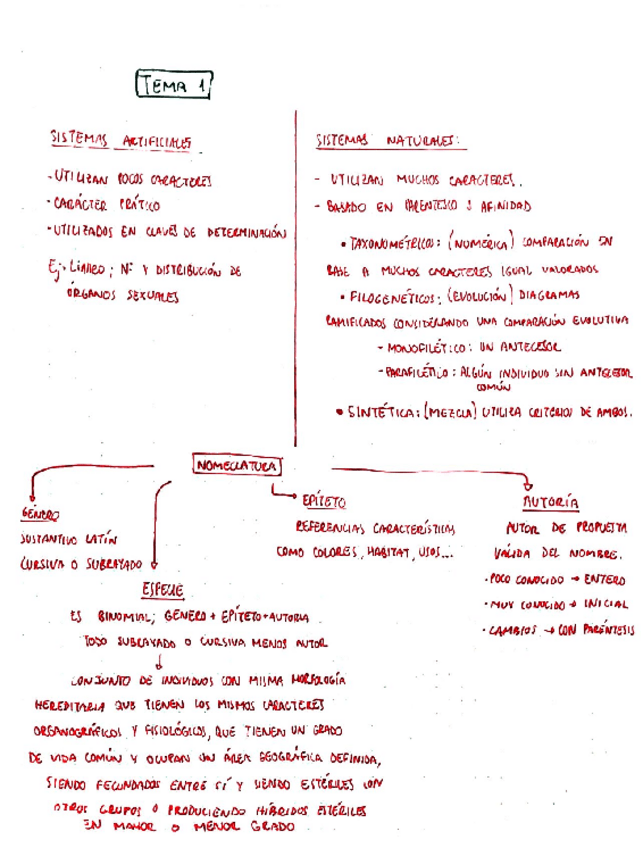 TEMA 1
SISTEMAS ARTIFICIALES
- UTILIZAN POCOS CARACTERES
- CARÁCTER PRÁTICO
- UTILIZADOS EN CLAVES DE DETERMINACIÓN
Ej. LINNEO; Nº Y DISTRIBUCIÓN DE
ÓRGANOS SEXUALES
SISTEMAS NATURALES:
- UTILIZAN MUCHOS CARACTERES.
- BASADO EN PARENTESCO Y AFINIDAD
• TAXONOMÉTRICOS: (NUMÉRICA) COMPARACIÓN EN
BASE A MUCHOS CARACTERES IGUAL VALORADOS
• FILOGENÉTICOS: (EVOLUCIÓN) DIAGRAMAS
RAMIFICADOS CONSIDERANDO UNA COMPARACIÓN EVOLUTIVA
- MONOFILÉTICO: UN ANTECESOR
- PARAFILÉTICO: ALGÚN INDIVIDUO SIN ANTECESOR
COMÚN
• SINTÉTICA: (MEZCLA) UTILIZA CRITERIOS DE AMBOS.
NOMECLATURA
GÉNERO
SUSTANTIVO LATÍN
CURSIVA O SUBRAYADO
EPÍTETO
REFERENCIAS CARACTERÍSTICAS
COMO COLORES, HABITAT, USOS...
AUTORÍA
AUTOR DE PROPUESTA
VÁLIDA DEL NOMBRE.
• POCO CONOCIDO → ENTERO
• MUY CONOCIDO → INICIAL
• CAMBIOS → CON PARÉNTESIS
ESPECIE
ES BINOMIAL; GÉNERO + EPÍTETO + AUTORIA
TODO SUBRAYADO O CURSIVA MENOS AUTOR
↓
CONJUNTO DE INDIVIDUOS CON MISMA MORFOLOGÍA
HEREDITARIA QUE TIENEN LOS MISMOS CARACTERES
ORGANOGRÁFICOS Y FISIOLÓGICOS, QUE TIENEN UN GRADO
DE VIDA COMÚN Y OCUPAN UN ÁREA GEOGRÁFICA DEFINIDA,
SIENDO FECUNDADOS ENTRE SÍ Y SIENDO ESTÉRILES CON
OTROS GRUPOS O PRODUCIENDO HÍBRIDOS ESTÉRILES
EN MAYOR O MENOR GRADO